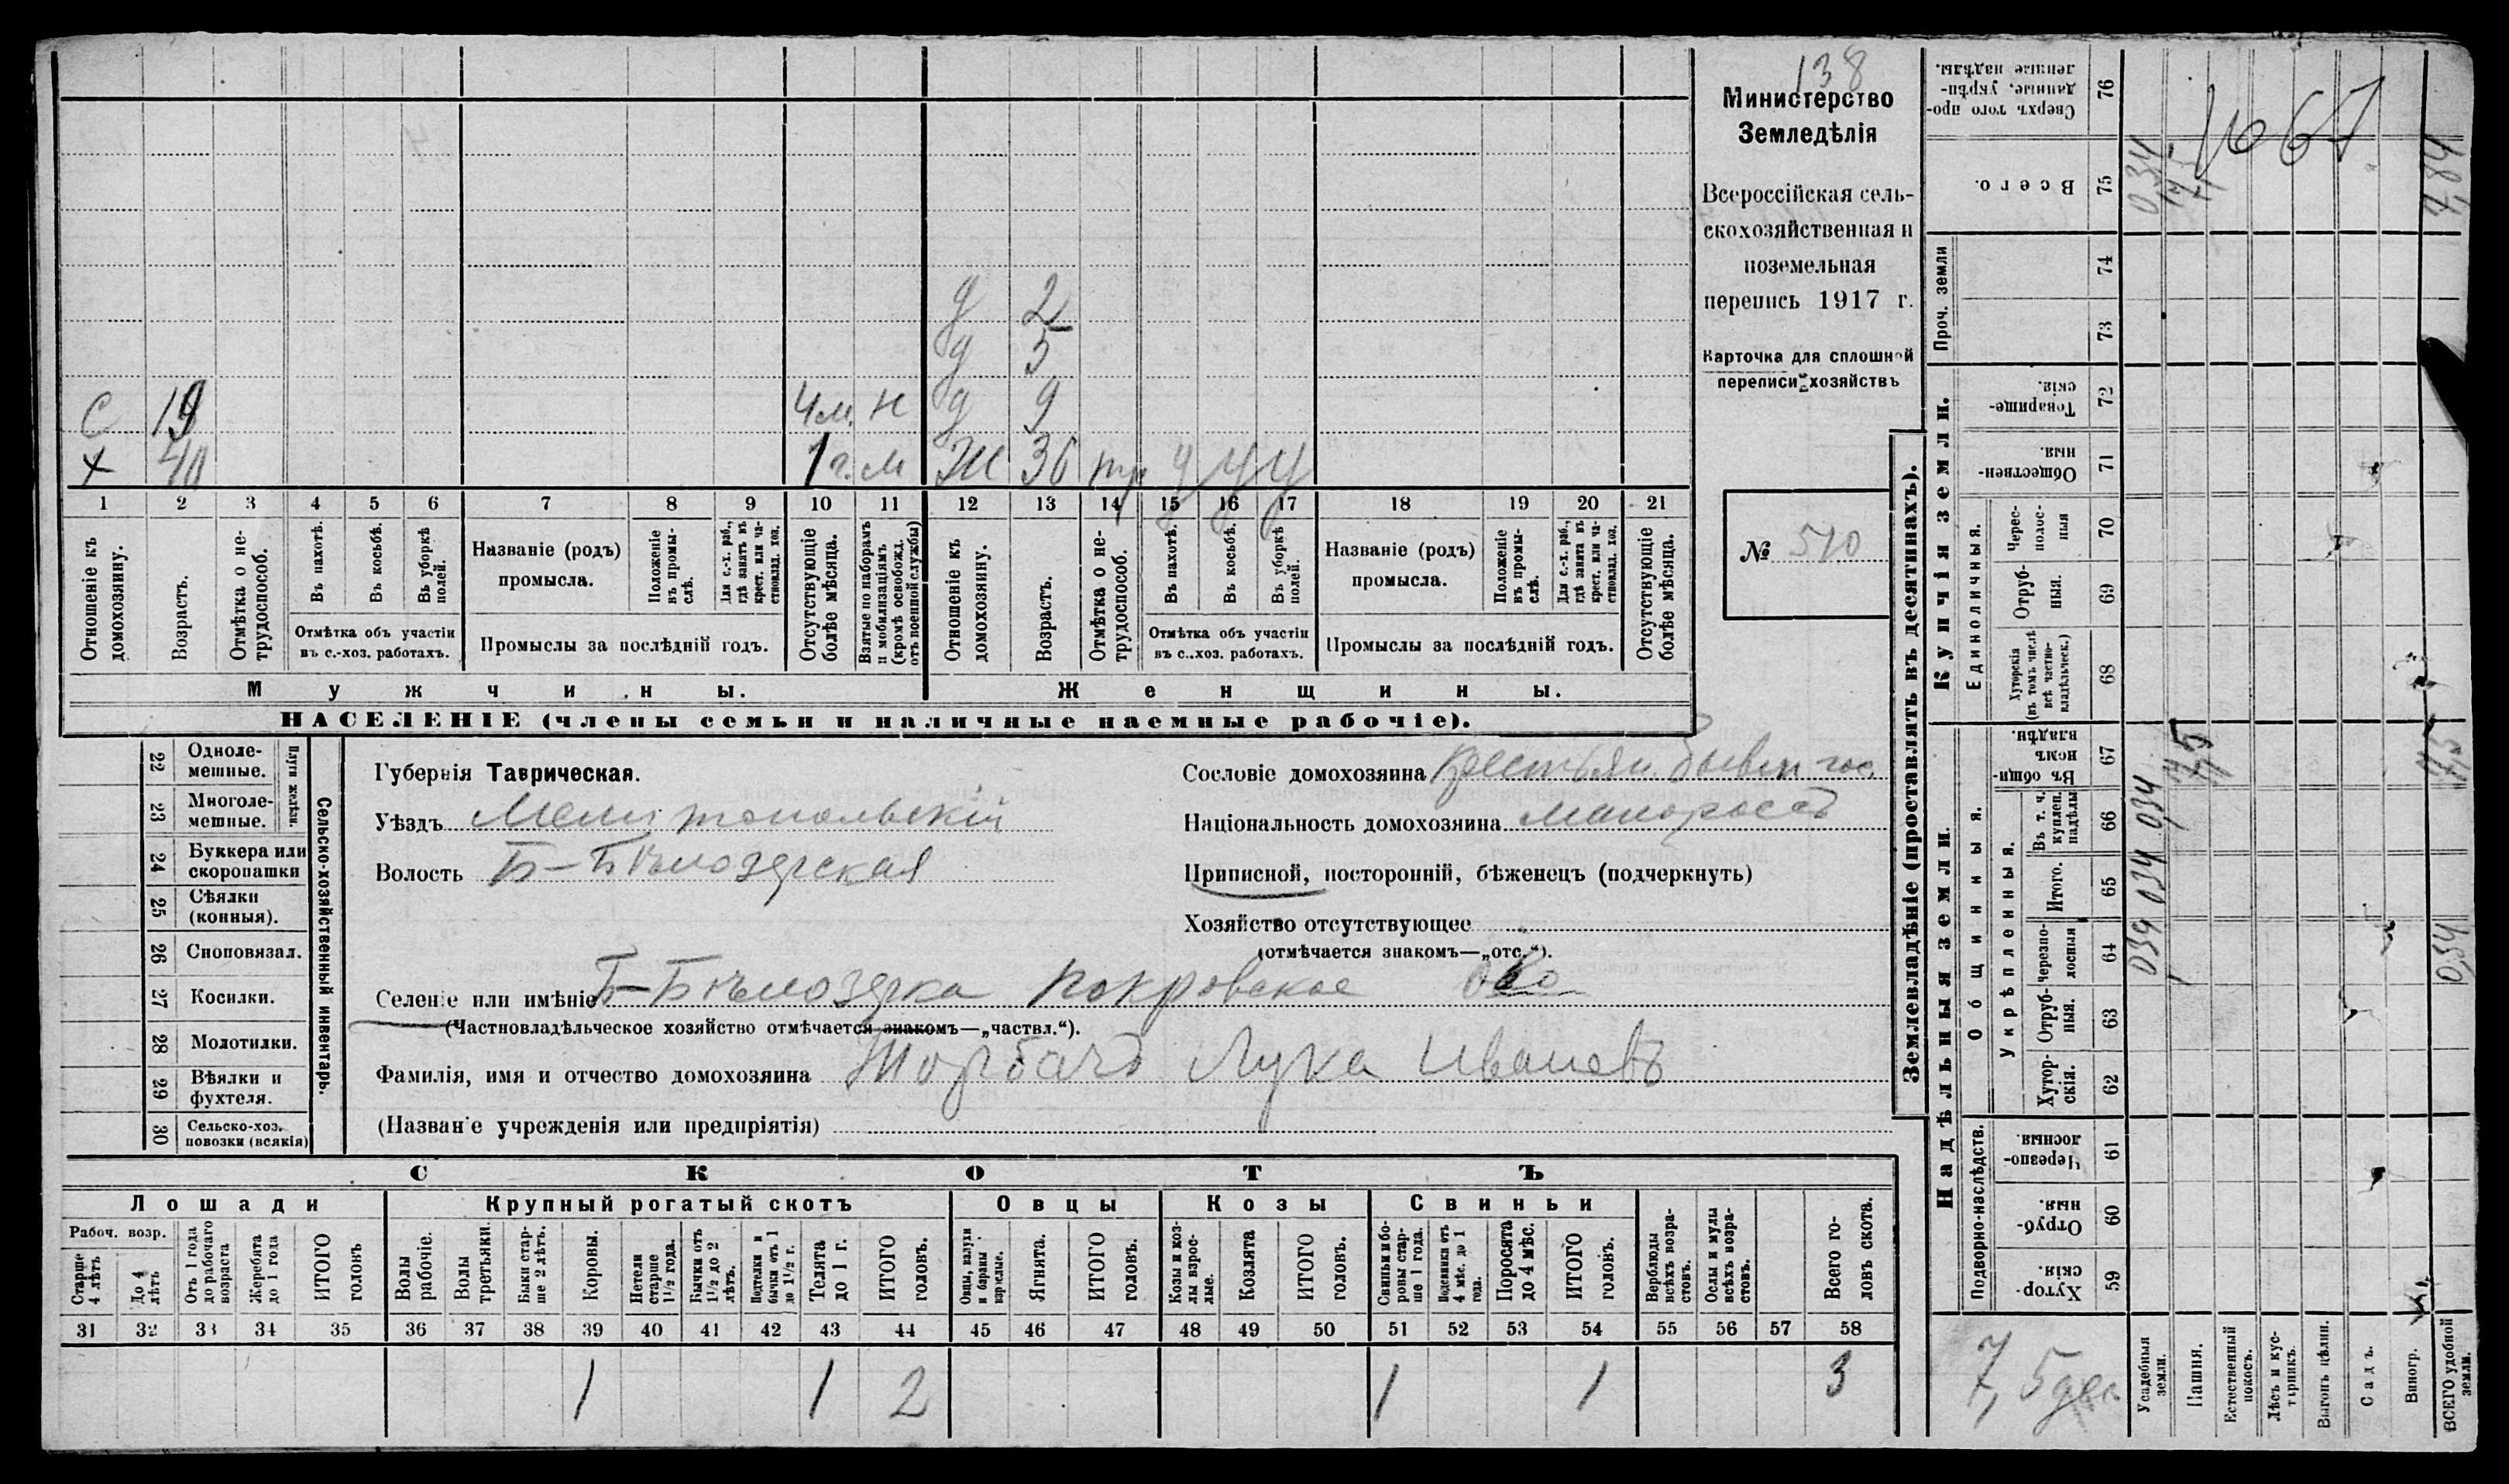 138
Министерство
Земледѣлія
Всероссійская сель-
скохозяйственная и
поземельная
перепись 1917 г.
Карточка для сплошной
переписи хозяйствъ
№ 510
д 2
д 5
С 19 4 м. н д 9
х 40 1 г. м Ж 36 у у у
1 2 3 4 5 6 7 8 9 10 11 12 13 14 15 16 17 18 19 20 21
Отношеніе къ домохозяину.
Возрастъ.
Отмѣтка о не-трудоспособ.
Въ пахотѣ.
Въ косьбѣ.
Въ уборкѣ полей.
Отмѣтка объ участіи
въ с.-хоз. работахъ.
Названіе (родъ)
промысла.
Положеніе въ промы-слѣ.
Для с.-х. раб., гдѣ занятъ въ крест. или ча-стновлад. хоз.
Промыслы за послѣдній годъ.
Отсутствующіе болѣе мѣсяца.
Взятые по наборамъ и мобилизаціямъ (кромѣ освобожд. отъ военной службы)
Отношеніе къ домохозяину.
Возрастъ.
Отмѣтка о не-трудоспособ.
Въ пахотѣ.
Въ косьбѣ.
Въ уборкѣ полей.
Отмѣтка объ участіи
въ с.-хоз. работахъ.
Названіе (родъ)
промысла.
Положеніе въ промы-слѣ.
Для с.-х. раб., гдѣ занята въ крест. или ча-стновлад. хоз.
Промыслы за послѣдній годъ.
Отсутствующіе болѣе мѣсяца.
Мужчины. Женщины.
НАСЕЛЕНІЕ (члены семьи и наличные наемные рабочіе).
Сельско-хозяйственный инвентарь.
Плуги желѣзн.
22 Одноле-мешные.
23 Многоле-мешные.
24 Буккера или скоропашки
25 Сѣялки (конныя).
26 Сноповязал.
27 Косилки.
28 Молотилки.
29 Вѣялки и фухтеля.
30 Сельско-хоз. повозки (всякія)
Губернія Таврическая.
Уѣздъ Мелитопольскій
Волость Б-Бѣлозерская
Сословіе домохозяина крестьян. бывш гос.
Національность домохозяина малороссъ
Приписной, посторонній, бѣженецъ (подчеркнуть)
Хозяйство отсутствующее
(отмѣчается знакомъ—„отс.“).
Селеніе или имѣніе Б-Бѣлозерка Покровское
(Частновладѣльческое хозяйство отмѣчается знакомъ—„частвл.“).
Фамилія, имя и отчество домохозяина Торбачъ Лука Ивановъ
(Названіе учрежденія или предпріятія)
СКОТЪ
Лошади Крупный рогатый скотъ Овцы Козы Свиньи
Рабоч. возр.
Старше 4 лѣтъ
До 4 лѣтъ
Отъ 1 года до рабочаго возраста
Жеребята до 1 года
ИТОГО головъ
Волы рабочіе.
Волы третьяки.
Быки стар-ше 2 лѣтъ.
Коровы.
Нетели старше 1½ года.
Бычки отъ 1½ до 2 лѣтъ.
Подтелки и бычки отъ 1 до 1½ г.
Телята до 1 г.
ИТОГО головъ.
Овцы, валухи и бараны взрослые.
Ягнята.
ИТОГО головъ.
Козы и коз-лы взрос-лые.
Козлята
ИТОГО головъ.
Свиньи и бо-ровы стар-ше 1 года.
Подсвинки отъ 4 мѣс. до 1 года.
Поросята до 4 мѣс.
ИТОГО головъ.
Верблюды всѣхъ возра-стовъ.
Ослы и мулы всѣхъ возра-стовъ.
Всего го-ловъ скота.
31 32 33 34 35 36 37 38 39 40 41 42 43 44 45 46 47 48 49 50 51 52 53 54 55 56 57 58
1 1 2 1 1 3
Землевладѣніе (проставлять въ десятинахъ).
Купчія земли.
Надѣльныя земли.
Проч. земли
Единоличныя.
Общинныя.
Укрѣпленныя.
Подворно-наслѣдств.
Сверхъ того про-данные, укрѣп-ленные надѣлы. 76
Всего. 75
74
73
Товарище-скія. 72
Обществен-ныя. 71
Черес-полос-ныя 70
Отруб-ныя. 69
Хуторскія (въ томъ числѣ всѣ частно-владѣльческ.) 68
Въ общи-номъ владѣн. 67
Въ т. ч. куплен. надѣлы 66
Итого. 65
Черезпо-лосныя 64
Отруб-ныя. 63
Хутор-скія. 62
Черезпо-лосныя. 61
Отруб-ныя. 60
Хутор-скія. 59
Усадебныя земли.
Пашня.
Естественный покосъ.
Лѣсъ и кус-тарникъ.
Выгонъ цѣлин.
Садъ.
Виногр.
ВСЕГО удобной земли.
034
7,5
7,84
034 034 034
7,5
7,5
0,34
7,5 дес